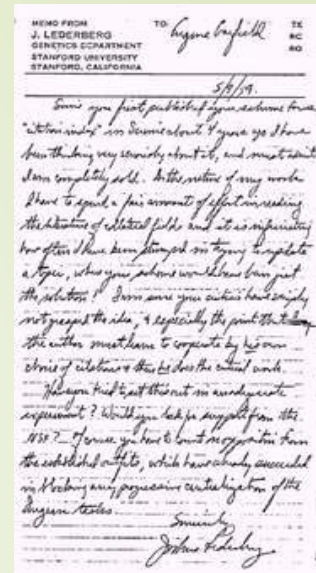 MEMO FROM TO: Eugene Garfield
J. LEDERBERG
GENETICS DEPARTMENT
STANFORD UNIVERSITY
STANFORD, CALIFORNIA
5/9/59.
Since you first published your scheme for a
"citation index" in Science about 4 years ago I have
been thinking very seriously about it, and must admit
I am completely sold. In the nature of my work
I have to spend a fair amount of effort in reading
the literature of collateral fields and it is infuriating
how often I have been stumped in trying to update
a topic, where your scheme would have been just
the solution! I am sure your critics have simply
not grasped the idea, & especially the point that
the author must have to cooperate by his own
choice of citations & thus he does the critical work.
Have you tried to put this out in an adequate
experiment? Would you look for support from the
NSF? Of course you have to count on opposition from
the established outfits, which have already succeeded
in blocking any progressive centralization of the
Augean tasks.
Sincerely
Joshua Lederberg